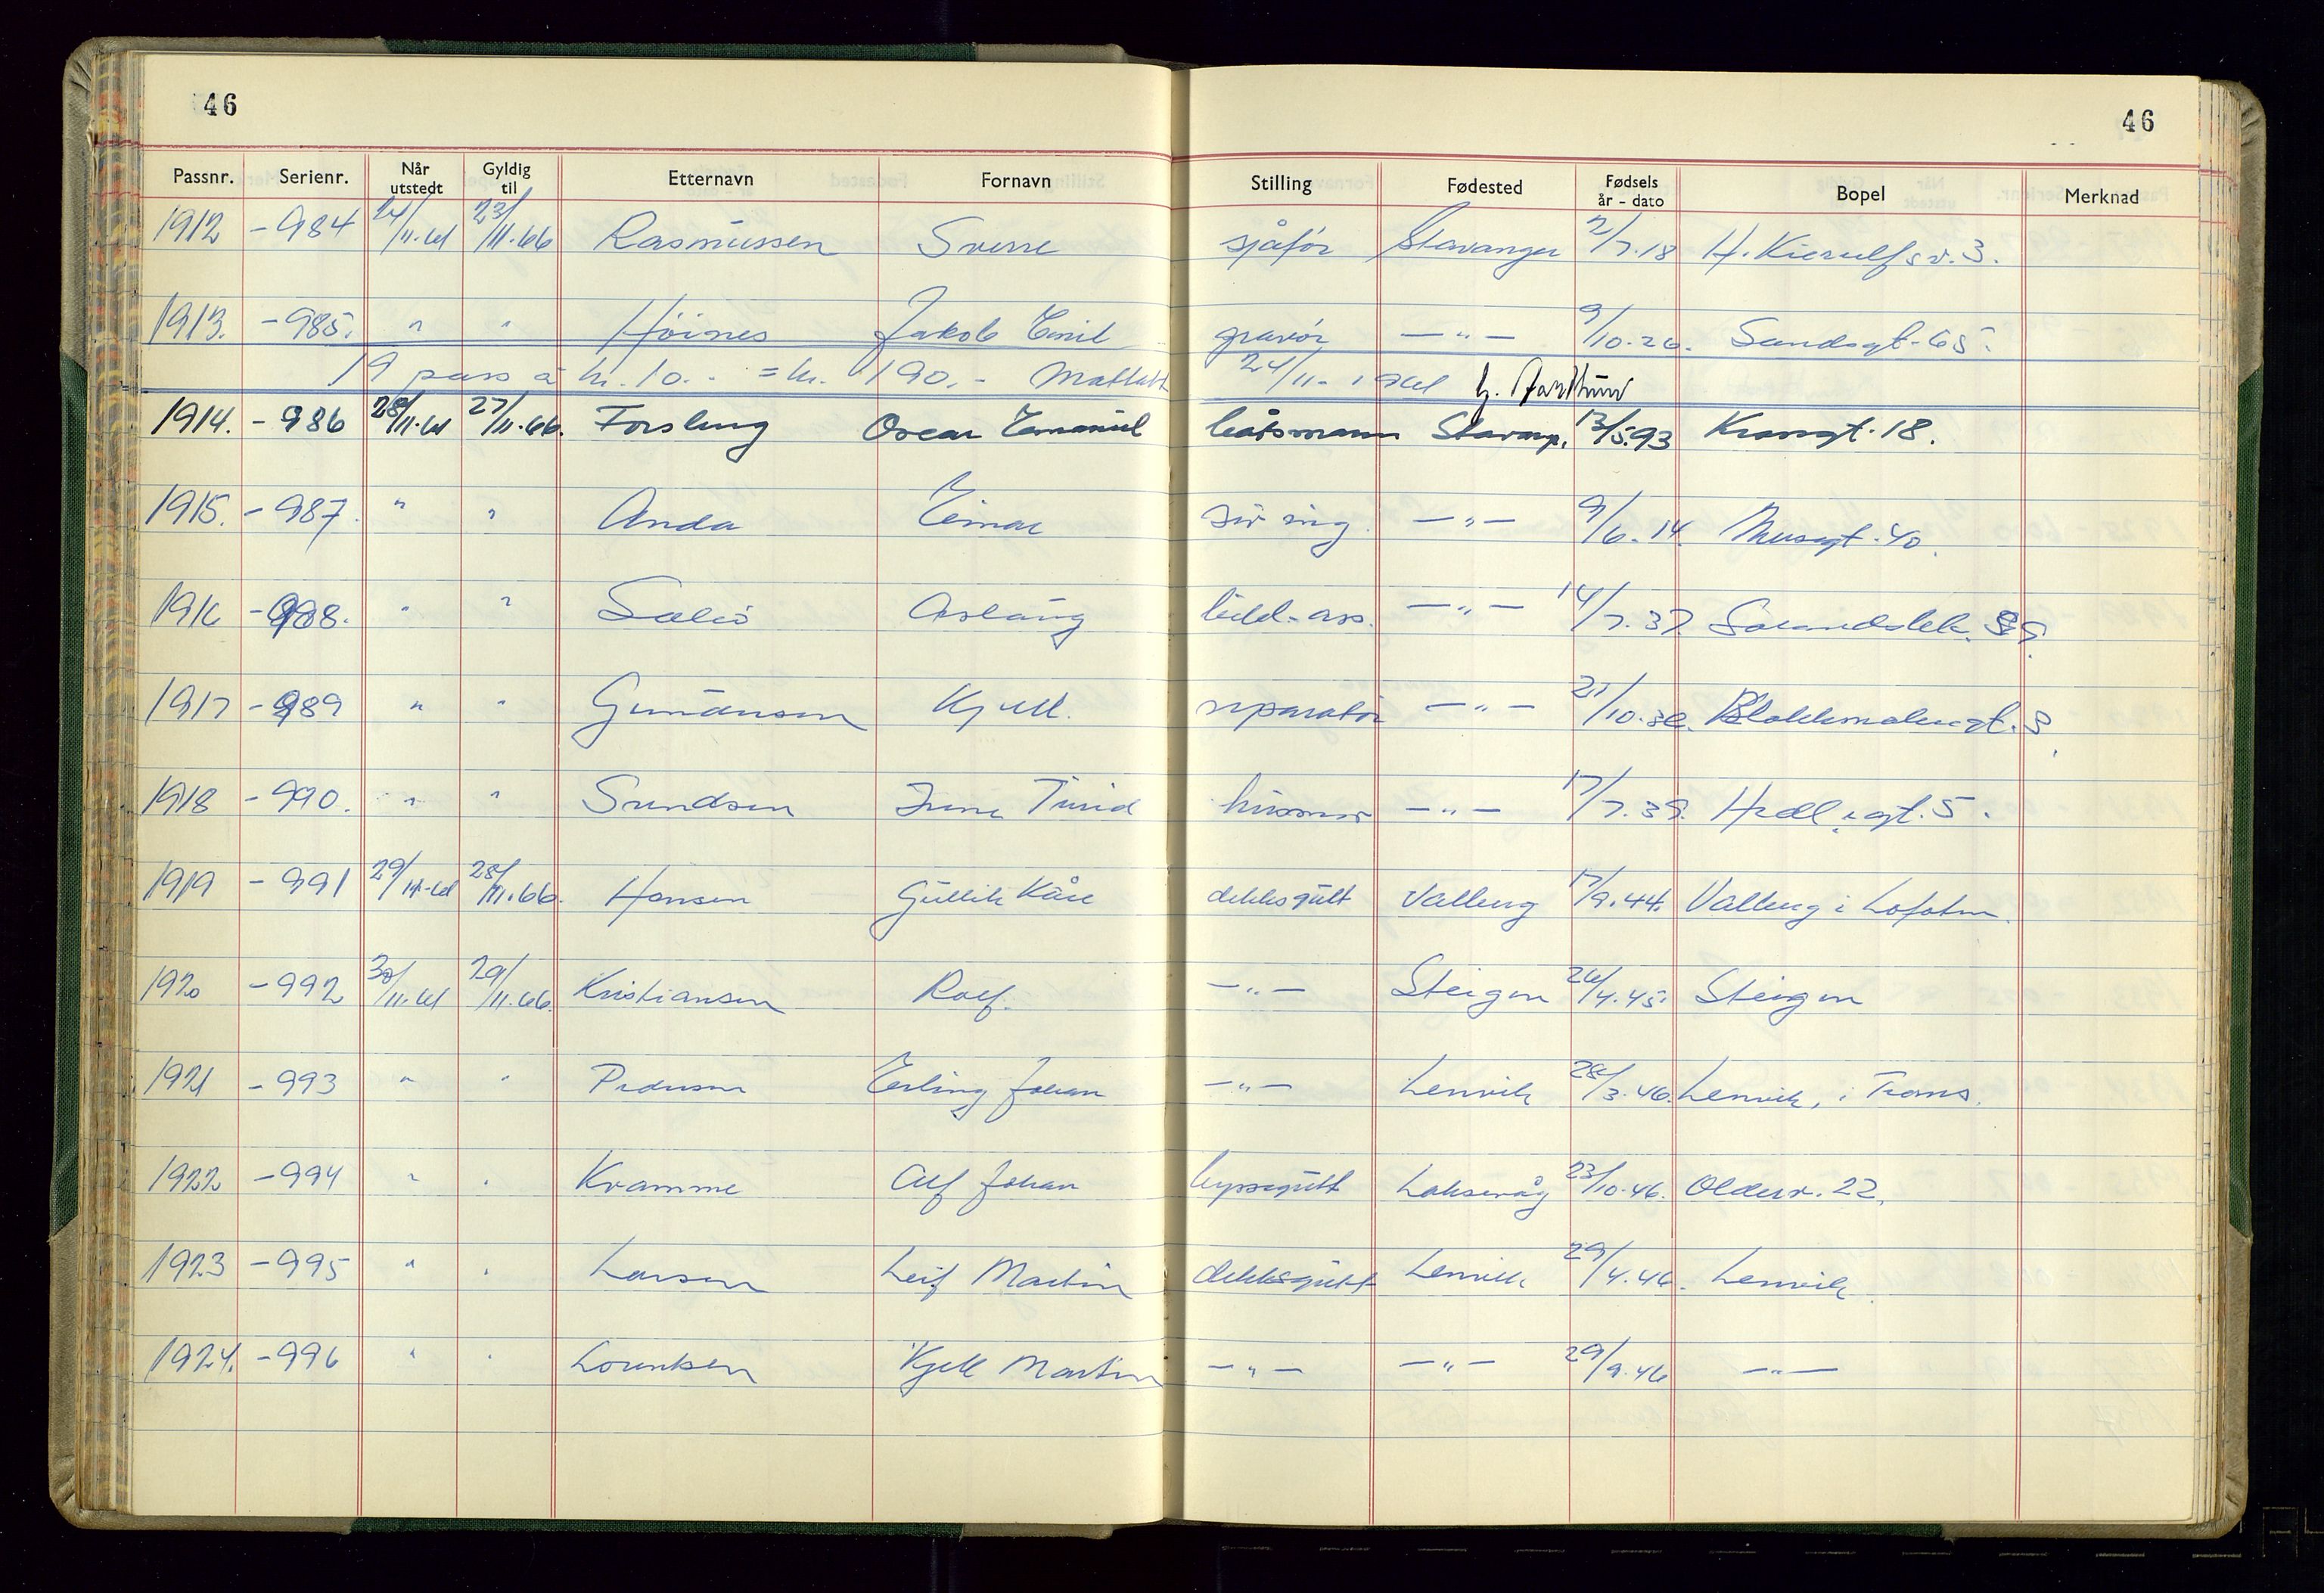 46 46
Passnr. Serienr. Når utstedt Gyldig til Etternavn Fornavn Stilling Fødested Fødsels år - dato Bopel Merknad
1912 -984 24/11.61 23/11.66 Rasmussen Sverre sjåfør Stavanger 2/7.18 H. Kierulfsv. 3.
1913. -985. " " Höines Jakob Emil gravör — " — 9/10.26. Sandsgt. 65.
19 pass á kr. 10.- = kr. 190.- Mottatt 24/11- 1961
1914. -986 28/11.61 27/11.66. Forsberg Oscar Emanuel båtsmann Stavang. 13/5.93 Kransgt. 18.
1915. -987. " " Anda Einar siv ing. — " — 9/6.14. Musegt. 40.
1916 -988. " " Aslaug — " — 14/7.37.
1917 -989 " " Gundersen Kjell. reparatör — " — Blekkenslagergt. 3
1918 -990. " " Svendsen Turid husmor — " — 17/7.39. gt. 5.
1919 -991 29/11.61 28/11.66. Hansen Gullik Kåre dekksgutt Valberg 17/9.44. Valberg i Lofoten.
1920 -992 30/11.61 29/11.66. Kristiansen Rolf. — " — Steigen 26/4.45. Steigen
1921 -993 " " Pedersen Erling Johan — " — Lenvik 28/3.46. Lenvik, i Troms.
1922 -994 " " Kramme Alf Johan byssegutt Laksevåg 23/10.46. Olderv. 22.
1923 -995 " " Larsen Leif Martin dekksgutt Lenvik 29/4.46. Lenvik.
1924. -996 " " Lorentsen Kjell Martin — " — — " — 29/9.46 — " —